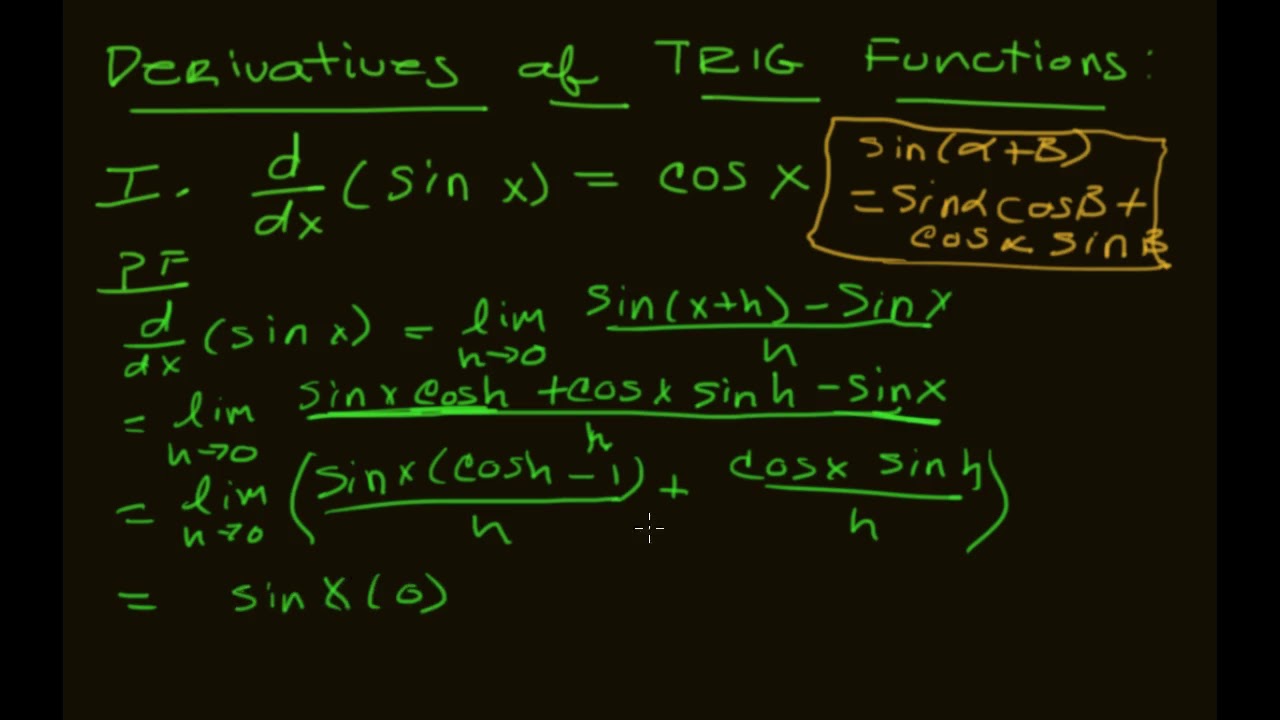 Derivatives of TRIG Functions:
I. d/dx (sin x) = cos x
sin(α+β)
= sinα cosβ +
cosα sinβ
PF
d/dx (sin x) = lim h→0 (sin(x+h) - sin x)/h
= lim h→0 (sin x cosh + cos x sinh - sin x)/h
= lim h→0 (sin x (cosh - 1)/h + cos x sinh/h)
= sin x (0)